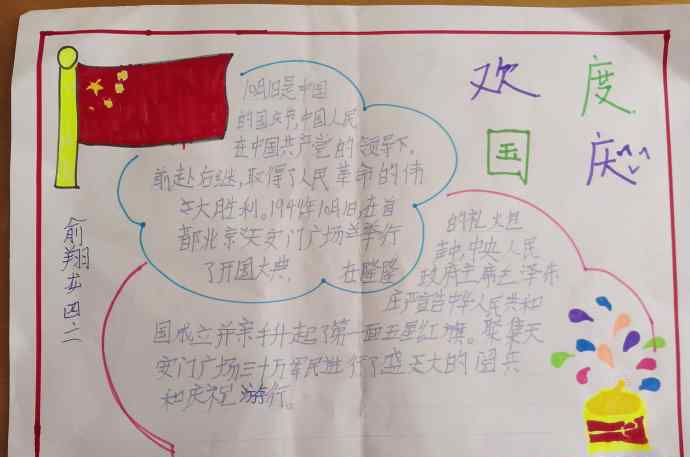 欢度
国庆
俞翔龙四二
10月1日是中国
的国庆节,中国人民
在中国共产党的领导下,
前赴后继,取得了人民革命的伟
大胜利。1949年10月1日,在首
都北京天安门广场举行
了开国大典,在隆隆
的礼炮
声中,中央人民
政府主席毛泽东
庄严宣告中华人民共和
国成立并亲手升起了第一面五星红旗。聚集天
安门广场三十万军民进行了盛大的阅兵
和庆祝游行。